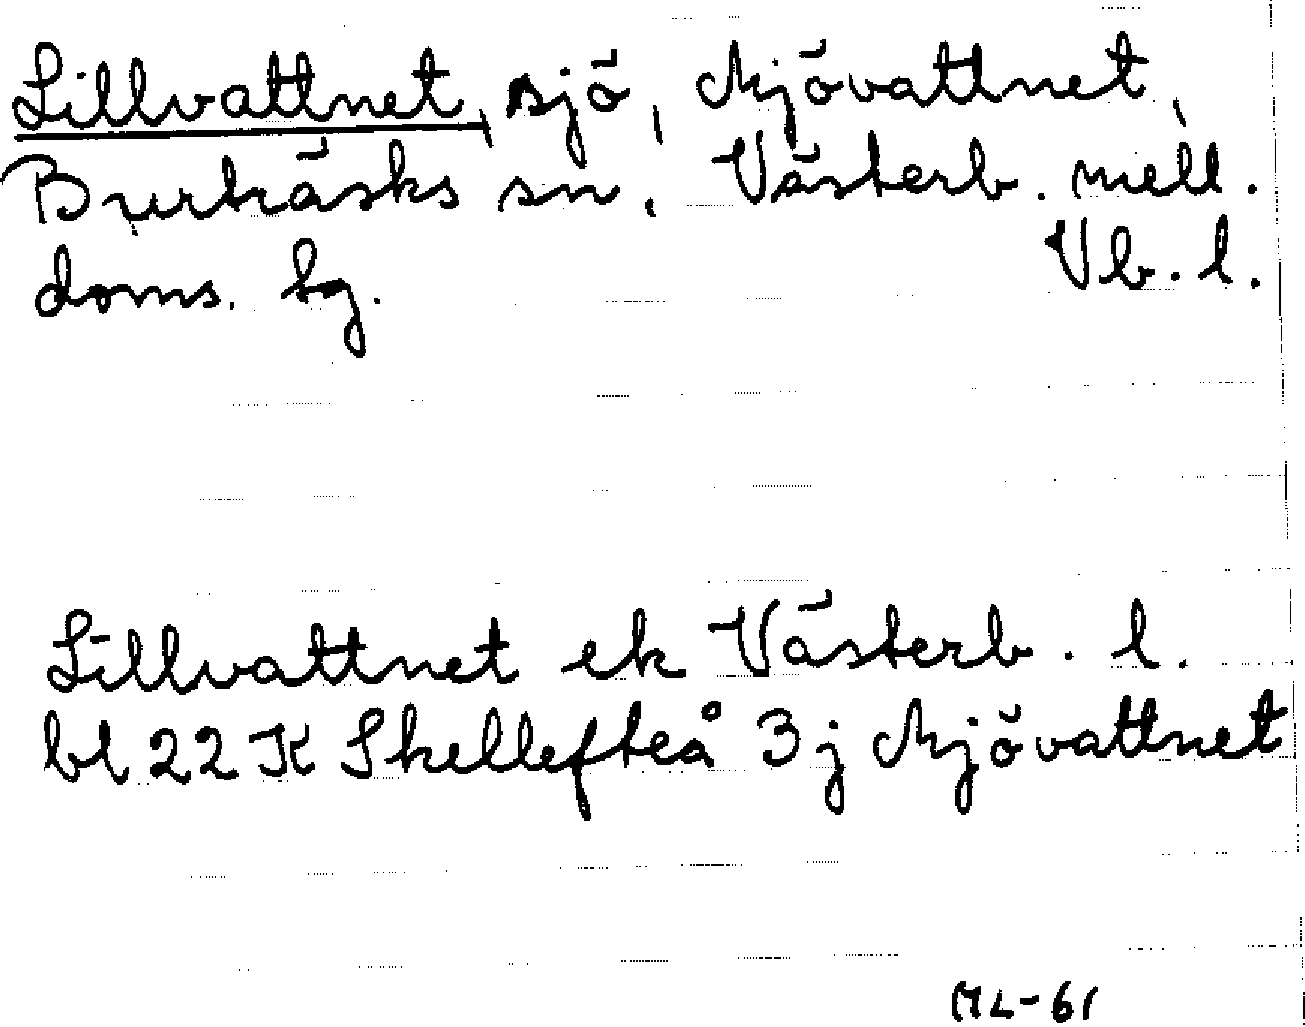 Lillvattnet, sjö, Mjövattnet,
Burträsks sn, Västerb. mell.
doms. bg. Vb. l.
Lillvattnet ek Västerb. l.
bl 22 K Skellefteå 3 j Mjövattnet
ML-61